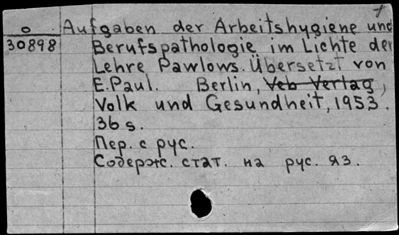 1
o Aufgaben der Arbeitshygiene und
30898 Berufspathologie im Lichte der
Lehre Pawlows. Übersetzt von
E.Paul. Berlin, Veb Verlag,
Volk und Gesundheit, 1953.
36 s.
Пер. с рус.
Содерж. стат. на рус. яз.